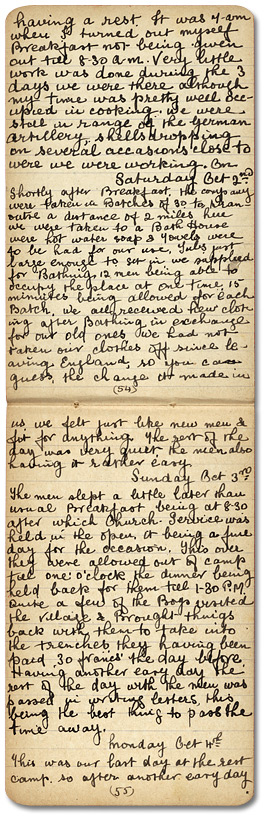 having a rest. It was 7-am
when I turned out myself
Breakfast not being given
out till 8-30 a.m. Very little
work was done during the 3
days we were there although
my time was pretty well occ-
upied in cooking, we were
still in range of the German
artillery, shells dropping
on several occasions close to
were we were working. On
Saturday Oct 2nd
Shortly after Breakfast, the company
were taken in Batches of 30 to
a distance of 2 miles here
we were taken to a Bath House
were hot water soap & towels were
to be had for our use. Tubs just
large enough to set in we supplied
for Bathing, 12 men being able to
occupy the place at one time, 15
minutes being allowed for each
Batch, we all received new cloth-
ing after Bathing in exchange
for our old ones. We had not
taken our clothes off since le-
aving England, so you can
guess, the change it made in
(54)
us, we felt just like new men &
fit for anything. The rest of the
day was very quiet the men also
having it rather easy.
Sunday Oct 3rd
The men slept a little later than
usual Breakfast being at 8-30
after which Church. Service was
held in the open, it being a fine
day for the occasion. This over
they were allowed out of camp
till one o'clock, the dinner being
held back for them till 1-30 P.M.
Quite a few of the Boys visited
the village & Brought things
back with them to take into
the trenches, they having been
paid 30 francs the day before.
Having another easy day the
rest of the day with the men was
passed in writing letters, this
being the best thing to pass the
time away.
Monday Oct 4th
This was our last day at the rest
camp, so after another easy day
(55)